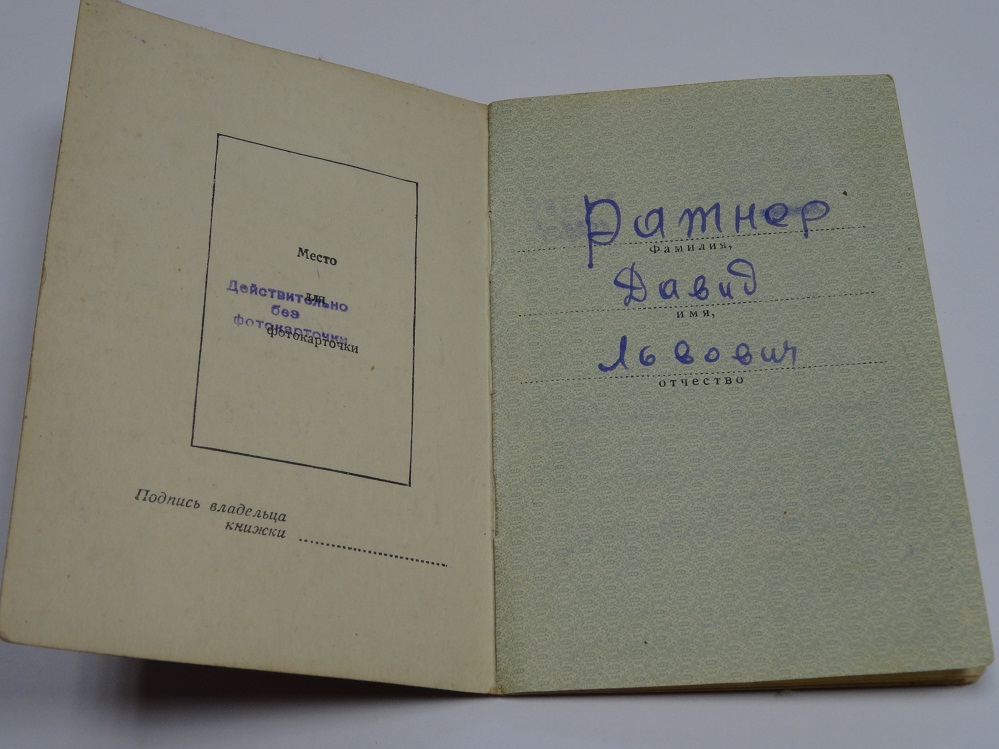 Место
для
фотокарточки
Действительно
без
фотокарточки
Подпись владельца
книжки
Ратнер
фамилия,
Давид
имя,
Львович
отчество